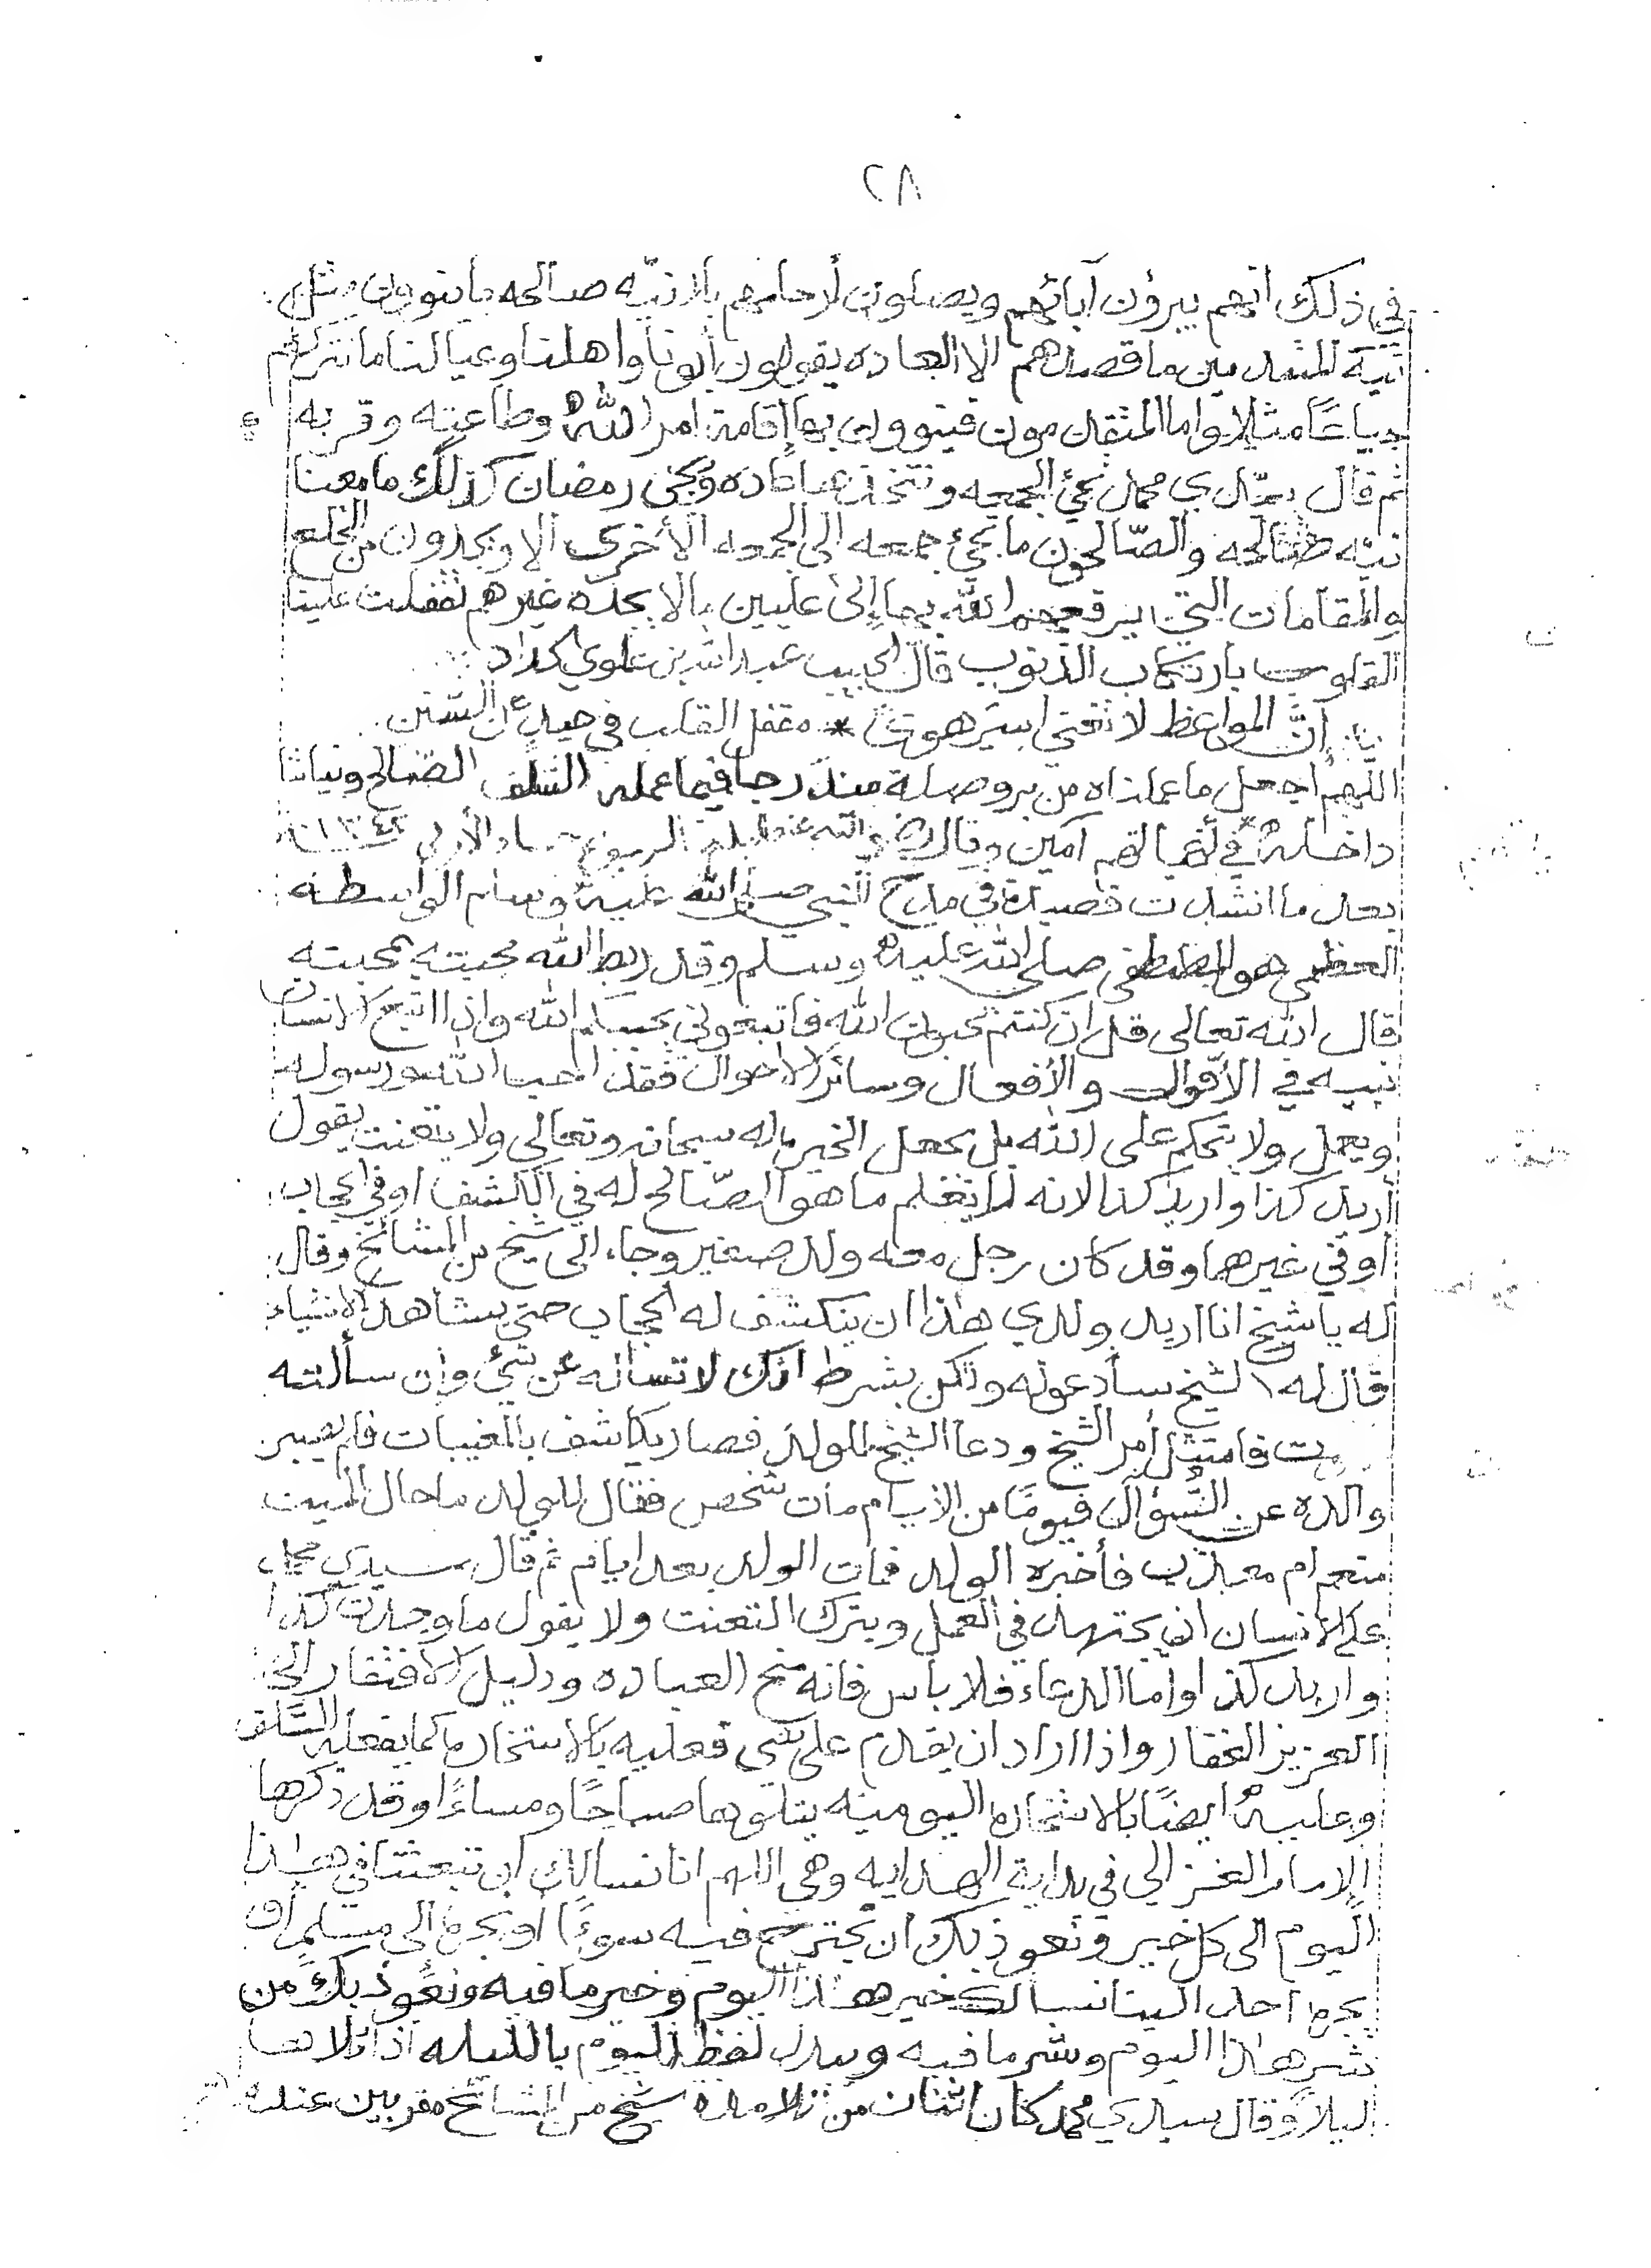 ٢٨
في ذلك انهم يبرون آبائهم ويصلون أرحامهم بلا نيّه صالحه ما ينوون مثل
نيّة المتقدمين ما قصدهم الا العاده يقولون أبونا واهلنا وعيالنا ما نتركهم
جياعًا مثلا واما المتقدمون فينوون بها إقامة امر الله وطاعته وقربه
ثم قال سيدي محمد تجئ الجمعه ونتخذها عاده ويجئ رمضان كذلك ما معنا
نيّه صالحه والصّالحون ما تجئ جمعه الى الجمعه الأخرى الا ويجدون من الخلع
والمقامات التي يرفعهم الله بها إلى عليين مالا يجده غيرهم ثقلت علينا
القلوب بارتكاب الذنوب قال الحبيب عبدالله بن علوي الحداد
انَّ المواعظ لا تغني اسير هوىً * مقفل القلب في حيدٍ عن السنن
اللهم اجعل ما عملناه من بر وصلة مندرجا فيما عمله السلف الصالح ونياتنا
داخلة في نياتهم آمين وقال رضي الله عنه ليلة الربوع جماد الأولى
بعد ما انشدت قصيدة في مدح النبي صلى الله عليه وسلم الواسطه
العظمى هو المصطفى صلى الله عليه وسلم وقد ربط الله محبته بمحبته
قال الله تعالى قل ان كنتم تحبون الله فاتبعوني يحببكم الله واذا اتبع الانسان
نبيه في الأقوال والأفعال وسائر الاحوال فقد احب الله ورسوله
ويعمل ولا يتحكم على الله بل يجعل الخيره له سبحانه وتعالى ولا يتعنت يقول
أريد كذا واريد كذا لانه لا يعلم ما هو الصّالح له في الكشف او في الحجاب
او في غيرهما وقد كان رجل معه ولد صغير وجاء الى شيخ من المشائخ وقال
له يا شيخ انا اريد ولدي هذا ان ينكشف له الحجاب حتى يشاهد الاشياء
قال له الشيخ سأدعو له ولكن بشرط انك لا تسأله عن شئ وان سألته
يمت فامتثل أمر الشيخ ودعا الشيخ للولد فصار يكاشف بالمغيبات فلم يصبر
والده عن السُّؤال فيومًا من الأيام مات شخص فقال للولد ما حال الميت
منعم ام معذب فأخبره الولد فمات الولد بعد ايام ثم قال سيدي محمد
على الانسان ان يجتهد في العمل ويترك التعنت ولا يقول ما وجدت كذا
واريد كذا وأما الدعاء فلا بأس فانه مخ العباده ودليل الافتقار الى
العزيز الغفار واذا اراد ان يقدم على شي فعليه بالاستخاره كما يفعله السَّلف
وعليه ايضًا بالاستخاره اليوميه يتلوها صباحًا ومساءً وقد ذكرها
الإمام الغزالي في بداية الهدايه وهي اللهم انا نسالك ان تبعثنا في هذا
اليوم الى كل خير ونعوذ بك ان نجترح فيه سوءًا أو نجره الى مسلم أو
يجره احد الينا نسالك خير هذا اليوم وخير ما فيه ونعوذ بك من
شر هذا اليوم وشر ما فيه ويبدل لفظ اليوم بالليله اذا تلاها
ليلاً وقال سيدي محمد كان اثنان من تلامذة شيخ من المشائخ مقربين عنده